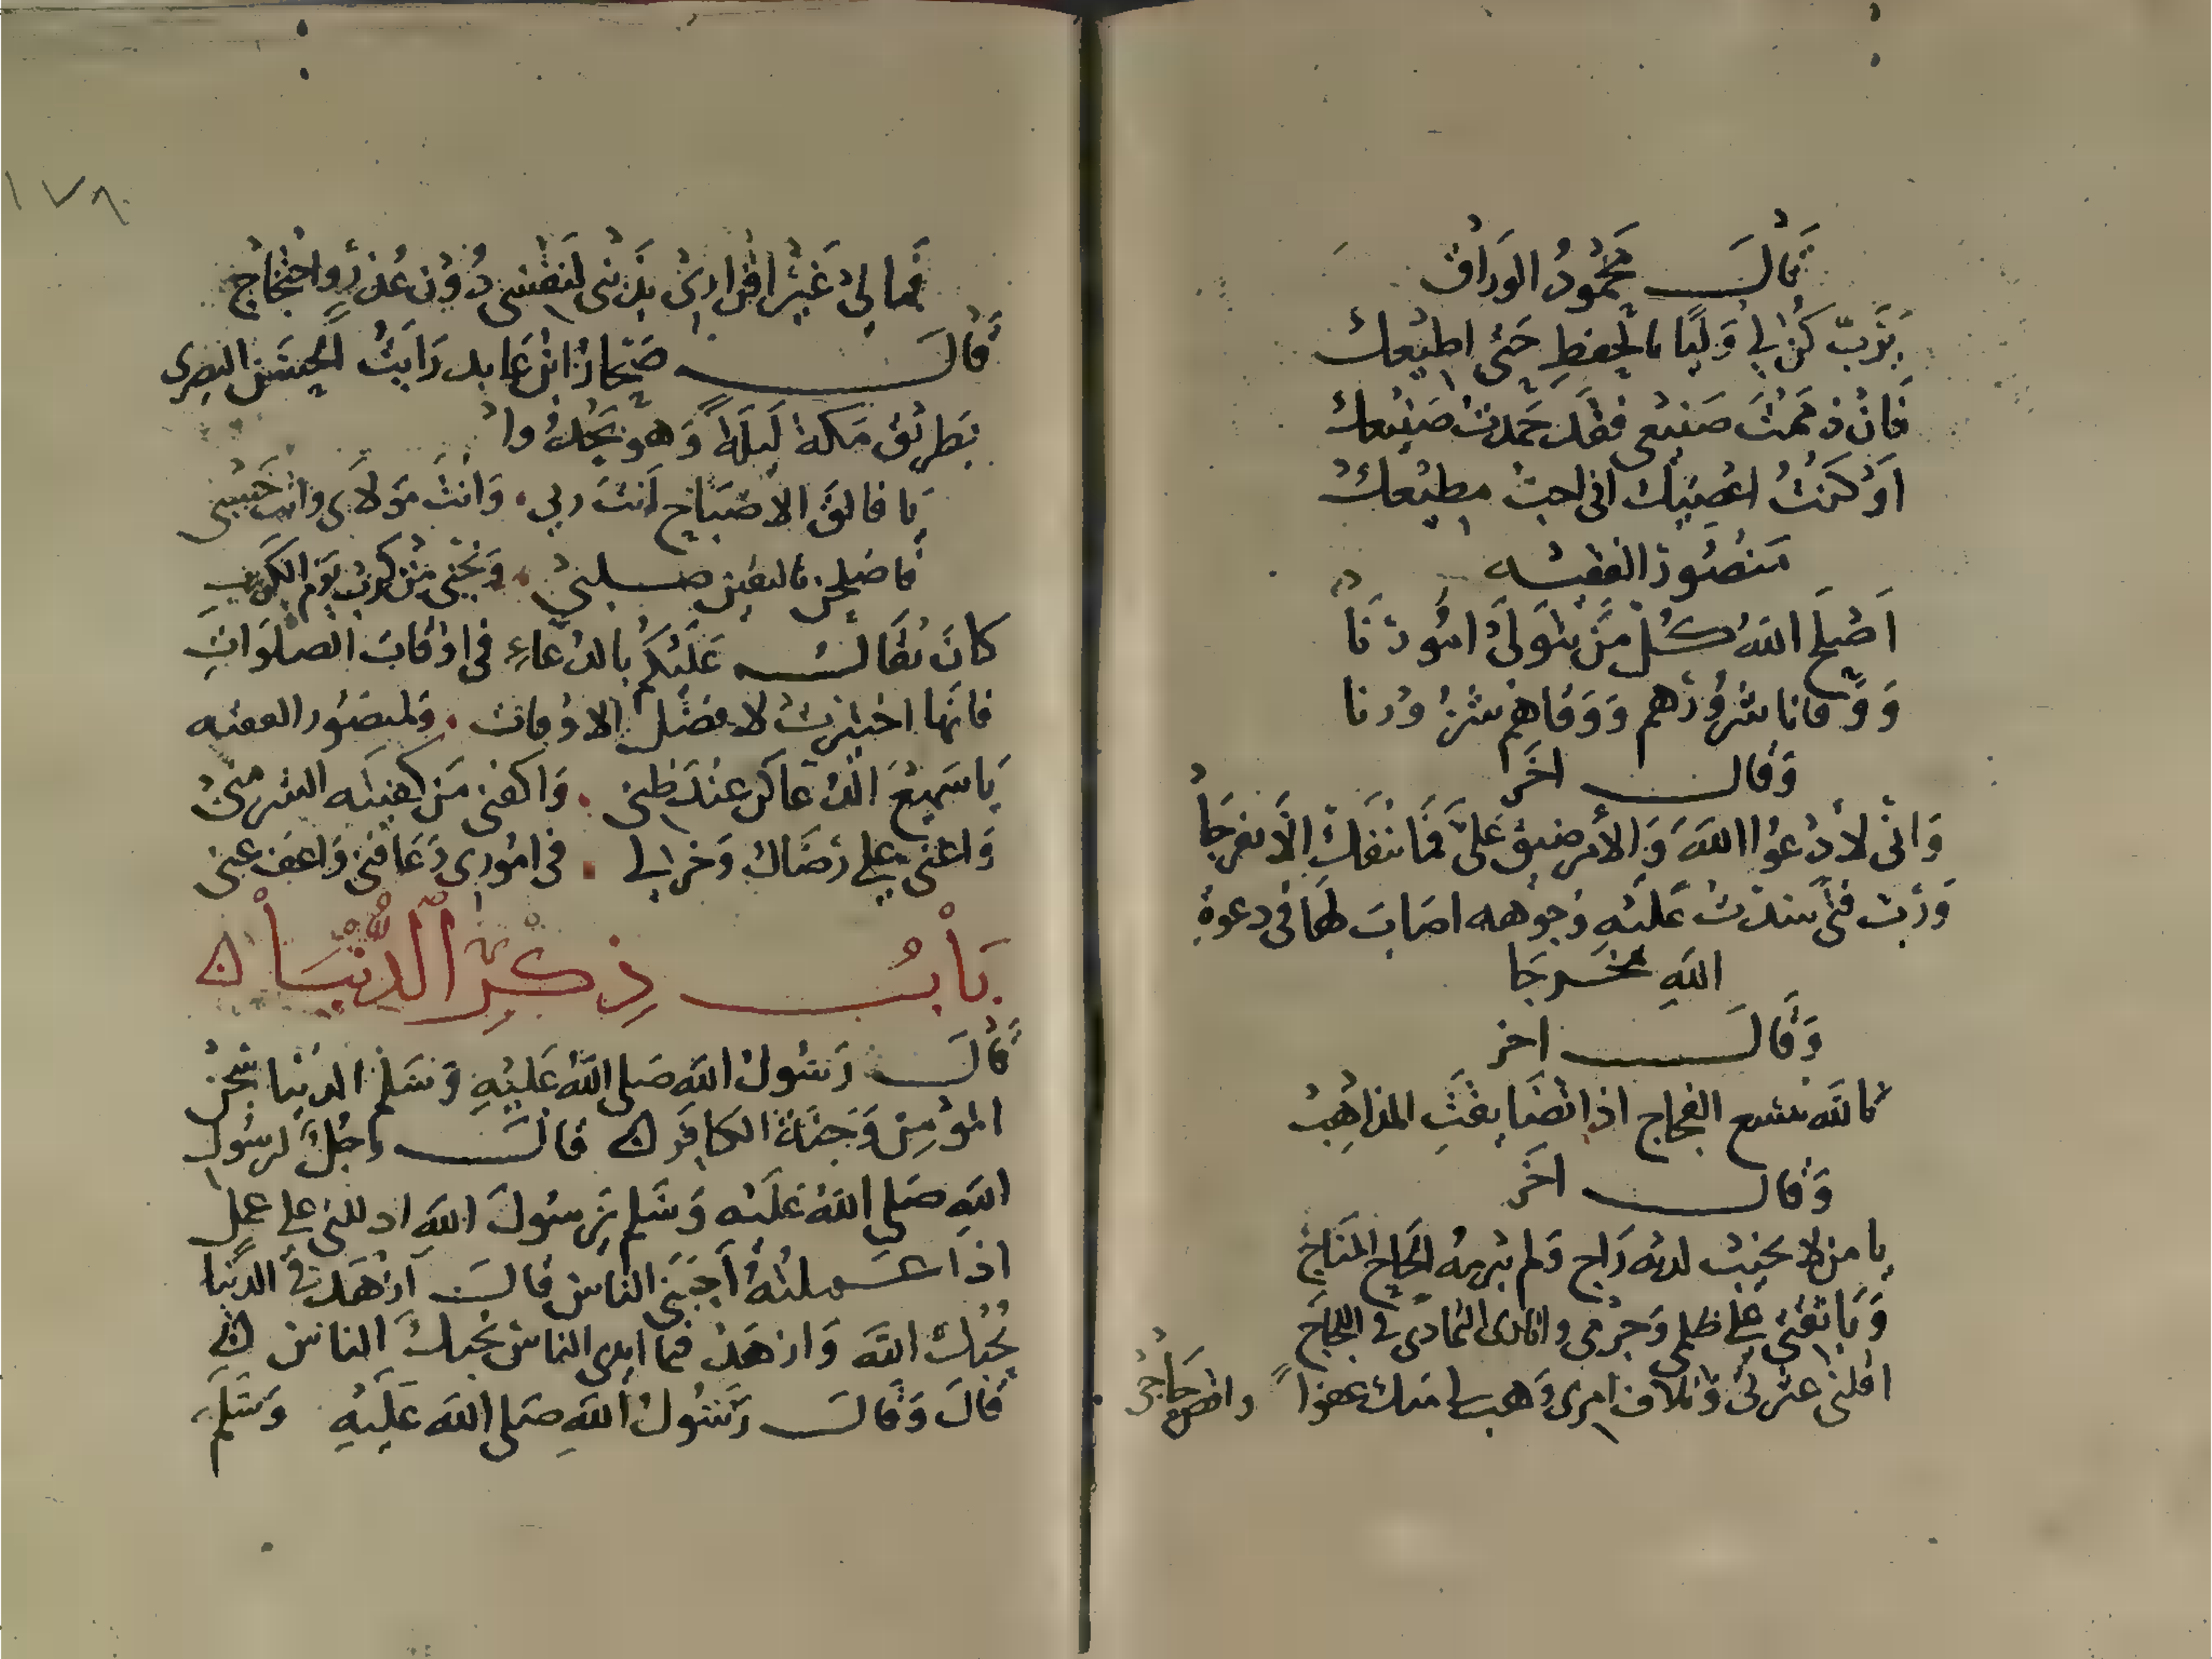 قَالَ مَحْمُودُ الوَرَاق
يَرَبّ كُن لِي وَليًا بالحِفظِ حَتى اطيعك
فَانْ ذممْتَ صَنيعى فقَد حَمدتُ صَنيعك
اوْ كنتُ اعْصيك انى احبُ مطيعك
مَنصُورُ الفقيه
اَصْلحَ اللهُ كُل مَن يتولَى امُورَنَا
وَوَقانا شرُورَهم وَوَقاهمْ شرُورَنا
وَقال اخَر
وَانى لأدْعُوا اللهَ وَالأمر ضيق عَلىَّ فمَا ينفَكّ الَّا تفرجَا
وَرُبَ فتى سدتْ عَليْهِ وُجوهه اصَابَ لهَا فى دعوةِ
اللهِ مخرجَا
وَقَالَ اخر
بالله تتسع الفجاج اذا تضَايقَتِ المذاهِبُ
وَقال اخَر
يا من لا يخيبُ لديه رَاج وَلم يبرمه الحَاح المنَاجْ
وَيَا ثقتى عَلى ظلمى وَجرْمى وايثارى التمادى فى اللجَاج
اقلنى عثرتى وَتلاف امرى وَهب لى منك عفوًا واقض حَاجى
١٧٨
فَما لِى غَيرُ اقرارى بذنبى لنفسى دُوْن عُذرٍ واحتجاج
قَالَ صَخارُ ابن عَابد رَايتُ الحَسَن البصرى
بَطريق مَكة لَيلَةً وَهو يَحْدُوا
يَا فالقَ الاصْبَاح اَنتَ ربى وَانتَ مَولاى وانت حَسْبى
فاصْلحن باليقين صلبى وَنجّنى مِن كرب يَوم الكَرب
كانَ يقَالُ عَليْكُم بالدعَاءِ فى اوقاتِ الصَلوَاتِ
فانهَا اختيرتْ لافضَل الاوقات وَلمنصُور الفقيه
يَا سَميعَ الدعَا كن عِندَ ظنى وَاكفنى مَن كفيتَه الشر منى
وَاعنى عَلى رضَاك وَخر لى فى امُورى وَعَافنى وَاعف عنى
بَابُ ذِكرِ الدُّنيَا
قَالَ رَسُولُ اللهِ صَلى اللهُ عَليْهِ وَسَلم الدنيا سِجن
المؤمِن وَجَنةُ الكَافِر قالَ رجُلٌ لرسُولِ
اللهِ صَلى اللهُ عَليْه وَسَلم يَرسُولَ اللهِ ادللنى على عملٍ
اذا عَملتهُ اَحَبنى الناس قالَ ازْهَد فى الدنيا
يُحُبك اللهَ وَازهَد فيما ايدى الناس يُحبك الناس
قالَ وَقَالَ رَسُولُ اللهِ صَلى اللهَ عَليْهِ وَسَلَم